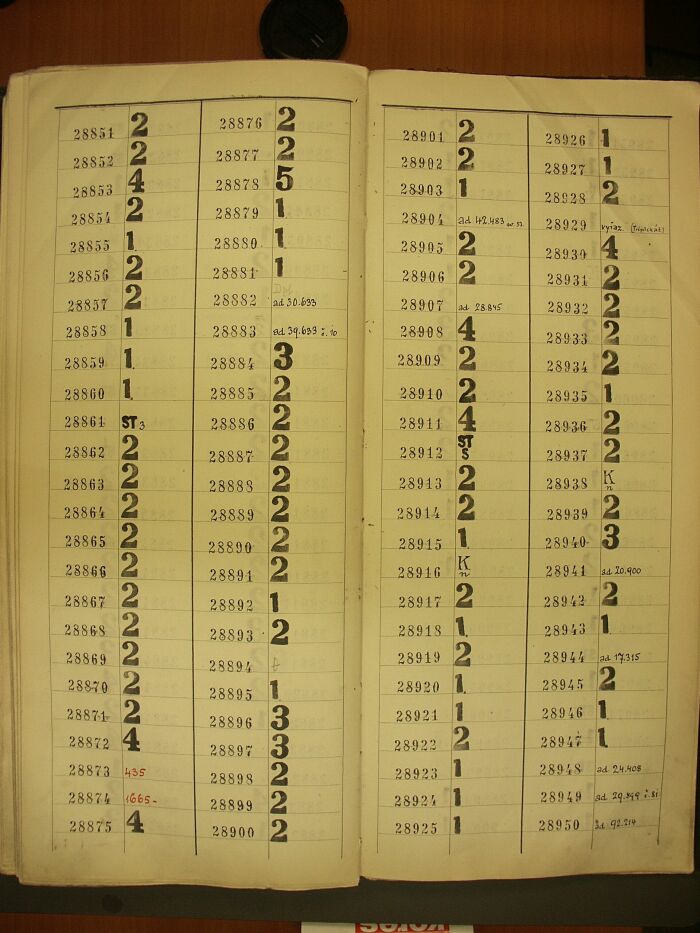 28851 2
28852 2
28853 4
28854 2
28855 1.
28856 2
28857 2
28858 1
28859 1.
28860 1.
28861 ST 3
28862 2
28863 2
28864 2
28865 2
28866 2
28867 2
28868 2
28869 2
28870 2
28871 2
28872 4
28873 435
28874 1665-
28875 4
28876 2
28877 2
28878 5
28879 1
28880 1
28881 1
28882 ad 30.633
28883 ad 39.633 č. 10
28884 3
28885 2
28886 2
28887 2
28888 2
28889 2
28890 2
28891 2
28892 1
28893 2
28894
28895 1
28896 3
28897 3
28898 2
28899 2
28900 2
28901 2
28902 2
28903 1
28904 ad 42.483
28905 2
28906 2
28907 ad 28.845
28908 4
28909 2
28910 2
28911 4
28912 ST S
28913 2
28914 2
28915 1
28916 K n
28917 2
28918 1.
28919 2
28920 1.
28921 1
28922 2
28923 1
28924 1
28925 1
28926 1
28927 1
28928 2
28929 vyřaz.
28930 4
28931 2
28932 2
28933 2
28934 2
28935 1
28936 2
28937 2
28938 K n
28939 2
28940 3
28941 ad 20.900
28942 2
28943 1.
28944 ad 17.315
28945 2
28946 1.
28947 1.
28948 ad 24.408
28949 č. 81
28950 ad 92.214